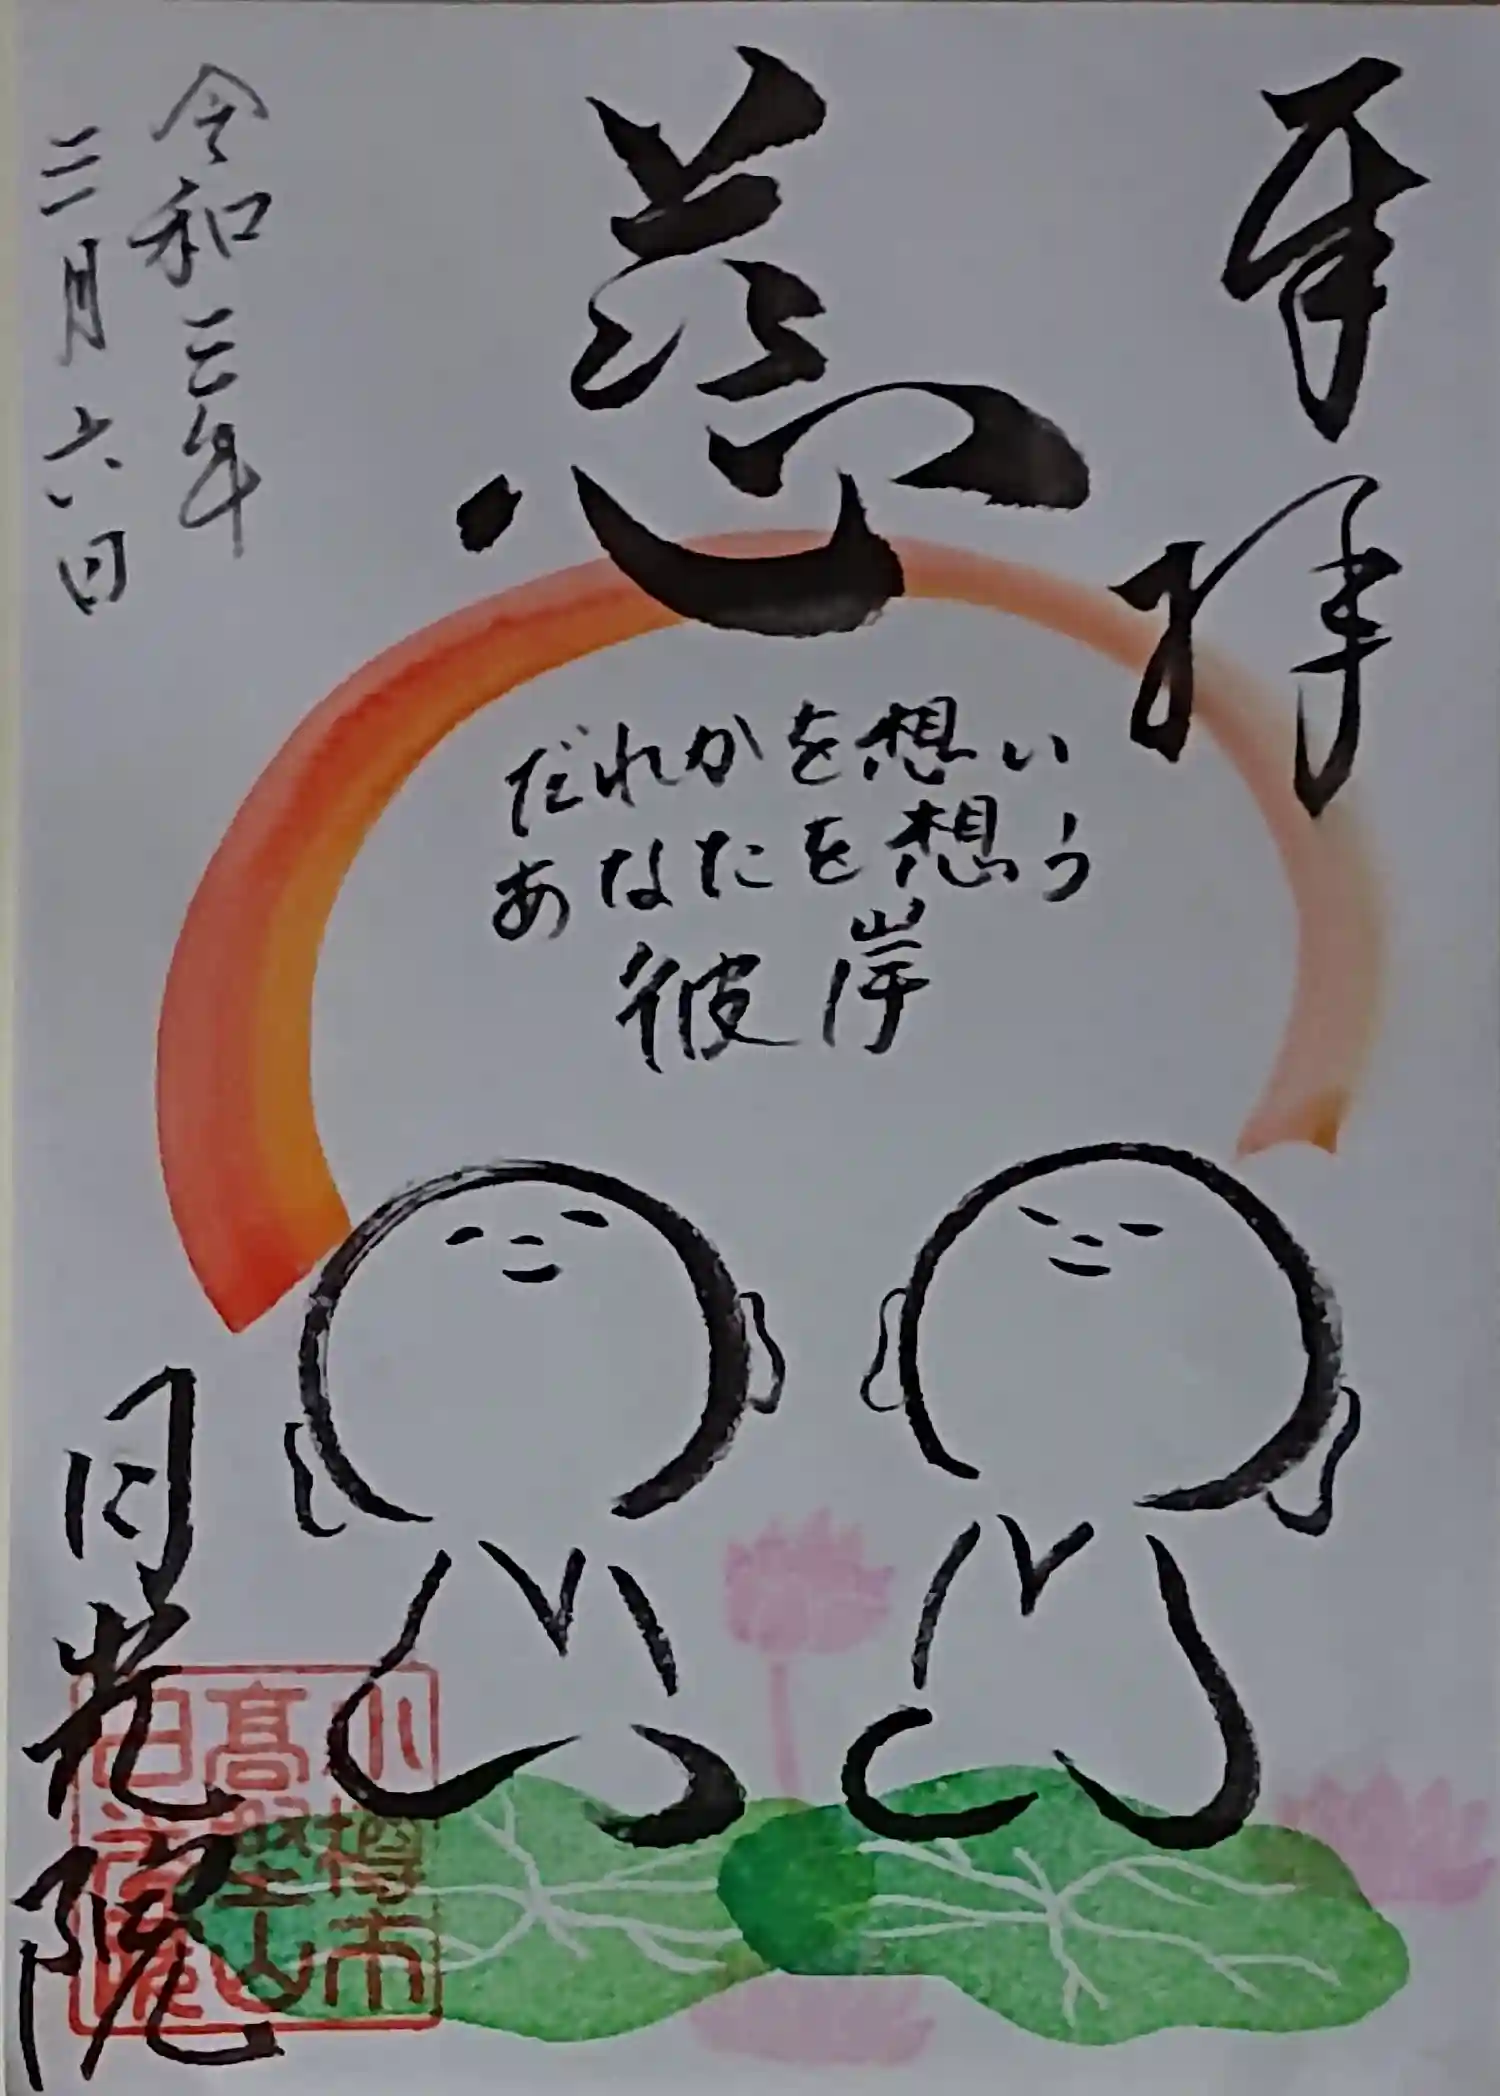 奉拝
慈
だれかを想い
あなたを想う
彼岸
令和三年
三月六日
日光院
小樽市
高野山
日光院